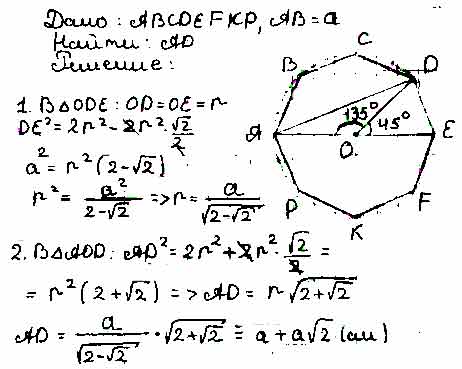 Дано: ABCDEFKP, AB=a
Найти: AD
Решение:
1. В△ODE: OD=OE=r
DE²=2r²-2r²·√2/2
a²=r²(2-√2)
r²=a²/(2-√2) => r=a/√(2-√2)
2. В△AOD: AD²=2r²+2r²·√2/2=
=r²(2+√2) => AD=r√(2+√2)
AD=a/√(2-√2)·√(2+√2)=a+a√2 (см)
C
B
D
135°
45°
A
O
E
P
F
K